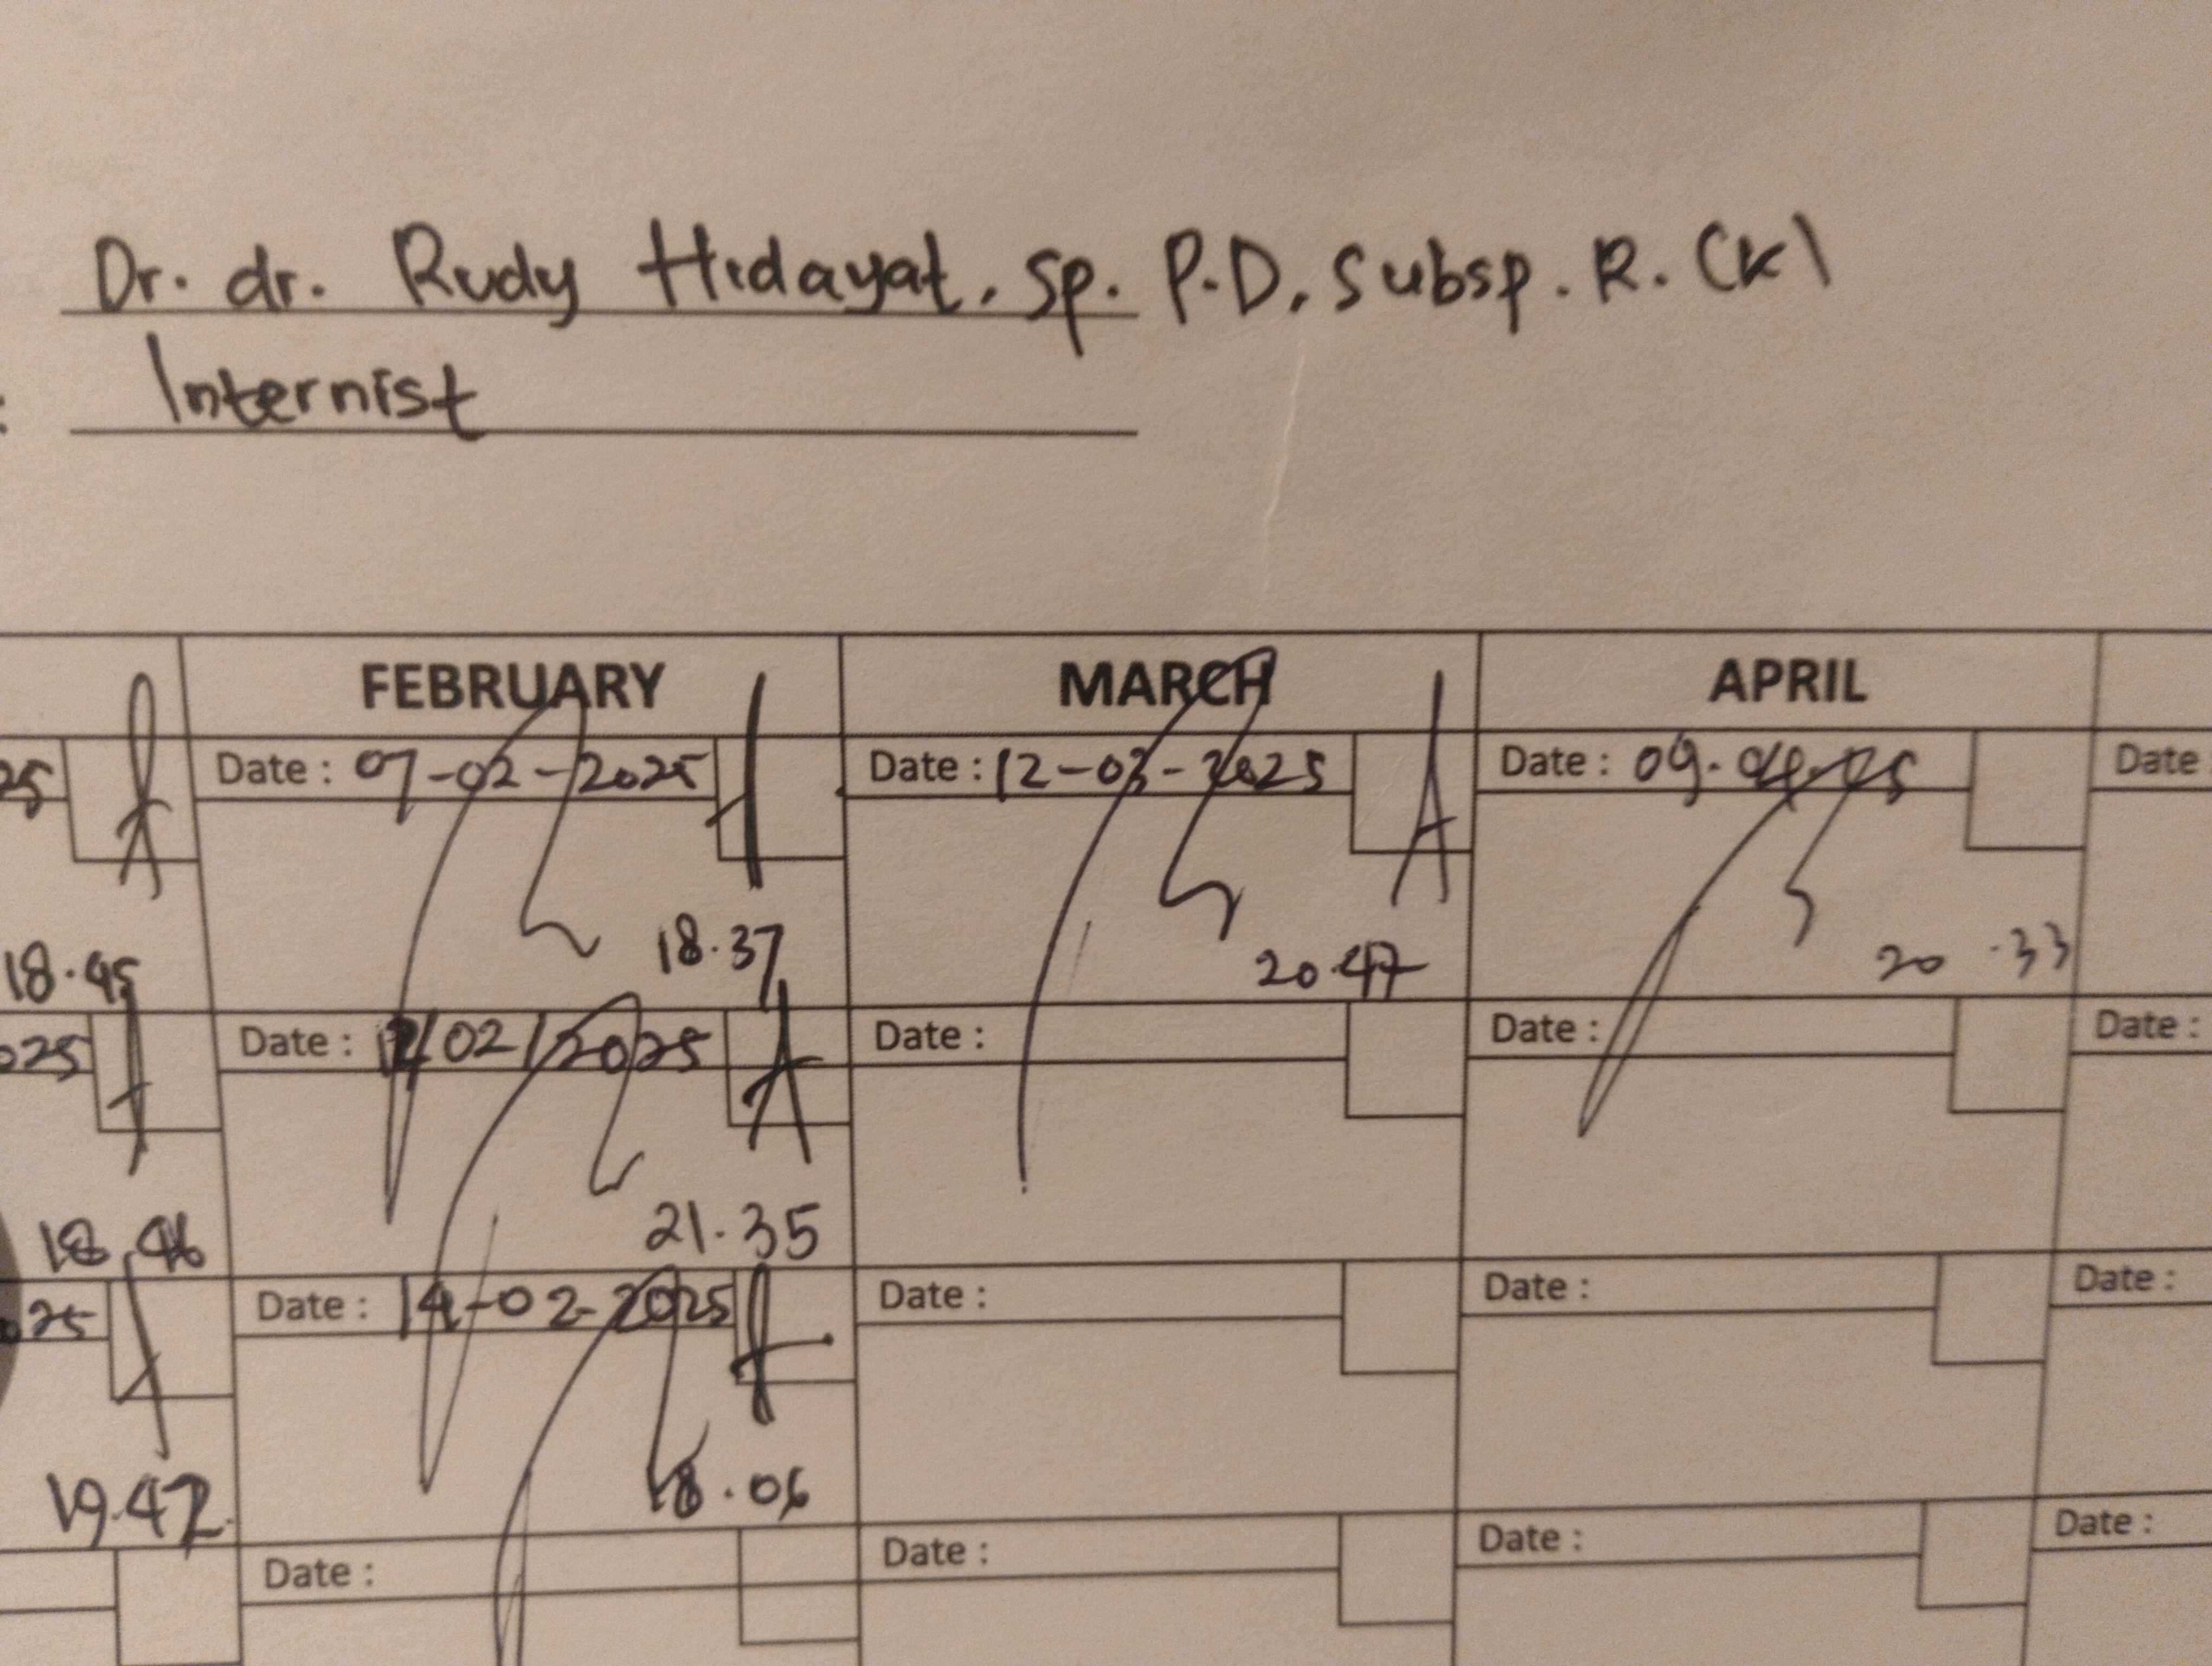 Dr. dr. Rudy Hidayat, Sp. P.D, Subsp. R. (K)
: Internist
FEBRUARY MARCH APRIL
25 Date : 07-02-2025 Date : 12-03-2025 Date : 09.04.25 Date
18.45 18.37 20.47 20.33
025 Date : /02/2025 Date : Date : Date :
18.46 21.35
025 Date : 14-02-2025 Date : Date : Date :
19.42 18.06
Date : Date : Date : Date :